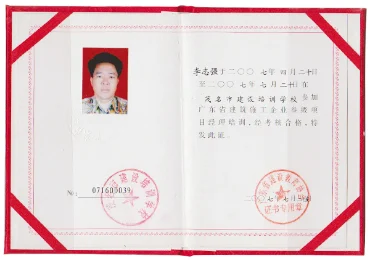 李志强于二〇〇七年四月二十日
至二〇〇七年七月二十日在
茂名市建设培训学校参加
广东省建筑施工企业
目经理培训，经考核合格，特
发此证。
№: 071603039
二〇〇七年七月